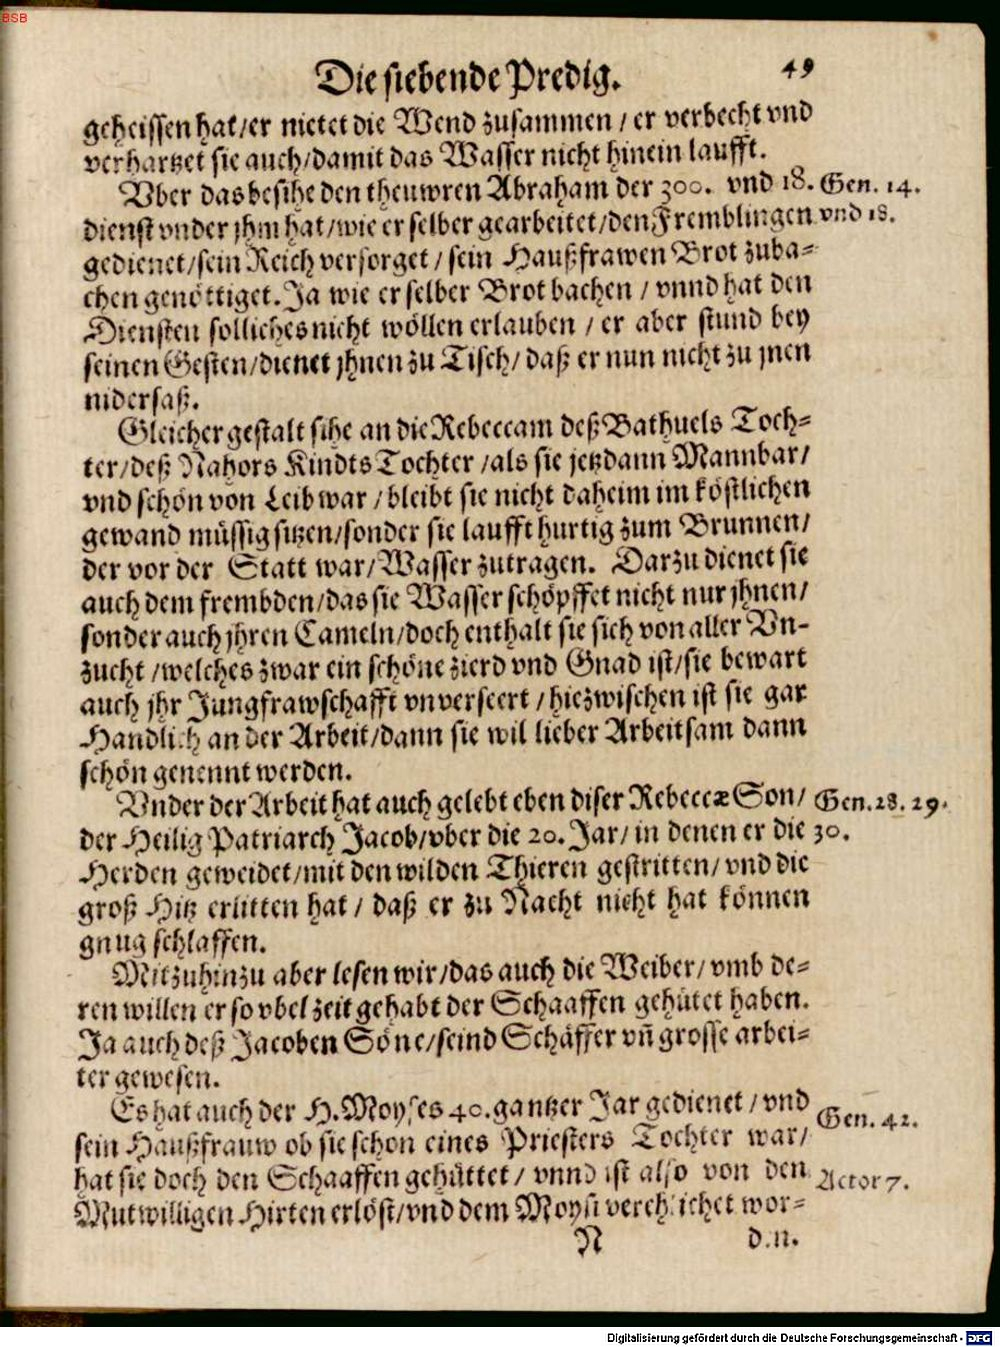 BSB
Die siebende Predig. 49
geheissen hat/er nietet die Wend zusammen / er verbecht vnd
verhartzet sie auch/damit das Wasser nicht hinein laufft.
Vber das besihe den theuwren Abraham der 300. vnd 18. Gen. 14.
dienst vnder jhm hat/wie er selber gearbeitet/den Fremblingen vnd 18.
gedienet/sein Reich versorget / sein Haußfrawen Brot zuba-
chen genöttiget. Ja wie er selber Brot bachen / vnnd hat den
Diensten solliches nicht wöllen erlauben / er aber stund bey
seinen Gesten/dienet jhnen zu Tisch/ daß er nun nicht zu jnen
nidersaß.
Gleicher gestalt sihe an die Rebeccam deß Bathuels Toch-
ter/deß Nahors Kindts Tochter /als sie jetzdann Mannbar/
vnd schön von Leib war / bleibt sie nicht daheim im köstlichen
gewand müssig sitzen/sonder sie laufft hurtig zum Brunnen/
der vor der Statt war/Wasser zutragen. Darzu dienet sie
auch dem frembden/das sie Wasser schöpffet nicht nur jhnen/
sonder auch jhren Cameln/doch enthalt sie sich von aller Vn-
zucht /welches zwar ein schöne zierd vnd Gnad ist/sie bewart
auch jhr Jungfrawschafft vnverseert / hiezwischen ist sie gar
Handlich an der Arbeit/dann sie wil lieber Arbeitsam dann
schön genennt werden.
Vnder der Arbeit hat auch gelebt eben diser Rebeccæ Son/ Gen. 28. 29.
der Heilig Patriarch Jacob/vber die 20. Jar/ in denen er die 30.
Herden geweidet/mit den wilden Thieren gestritten/ vnd die
groß Hitz erlitten hat / daß er zu Nacht nicht hat können
gnug schlaffen.
Mitzuhinzu aber lesen wir/das auch die Weiber/ vmb de-
ren willen er so vbel zeit gehabt der Schaaffen gehütet haben.
Ja auch deß Jacoben Söne/seind Schäffer vñ grosse arbei-
ter gewesen.
Es hat auch der H. Moyses 40. gantzer Jar gedienet / vnd Gen. 42.
sein Haußfrauw ob sie schon eines Priesters Tochter war/
hat sie doch den Schaaffen gehüttet / vnnd ist also von den Actor 7.
Mutwilligen Hirten erlöst/vnd dem Moysi verehlichet wor-
N d.n.
Digitalisierung gefördert durch die Deutsche Forschungsgemeinschaft - DFG